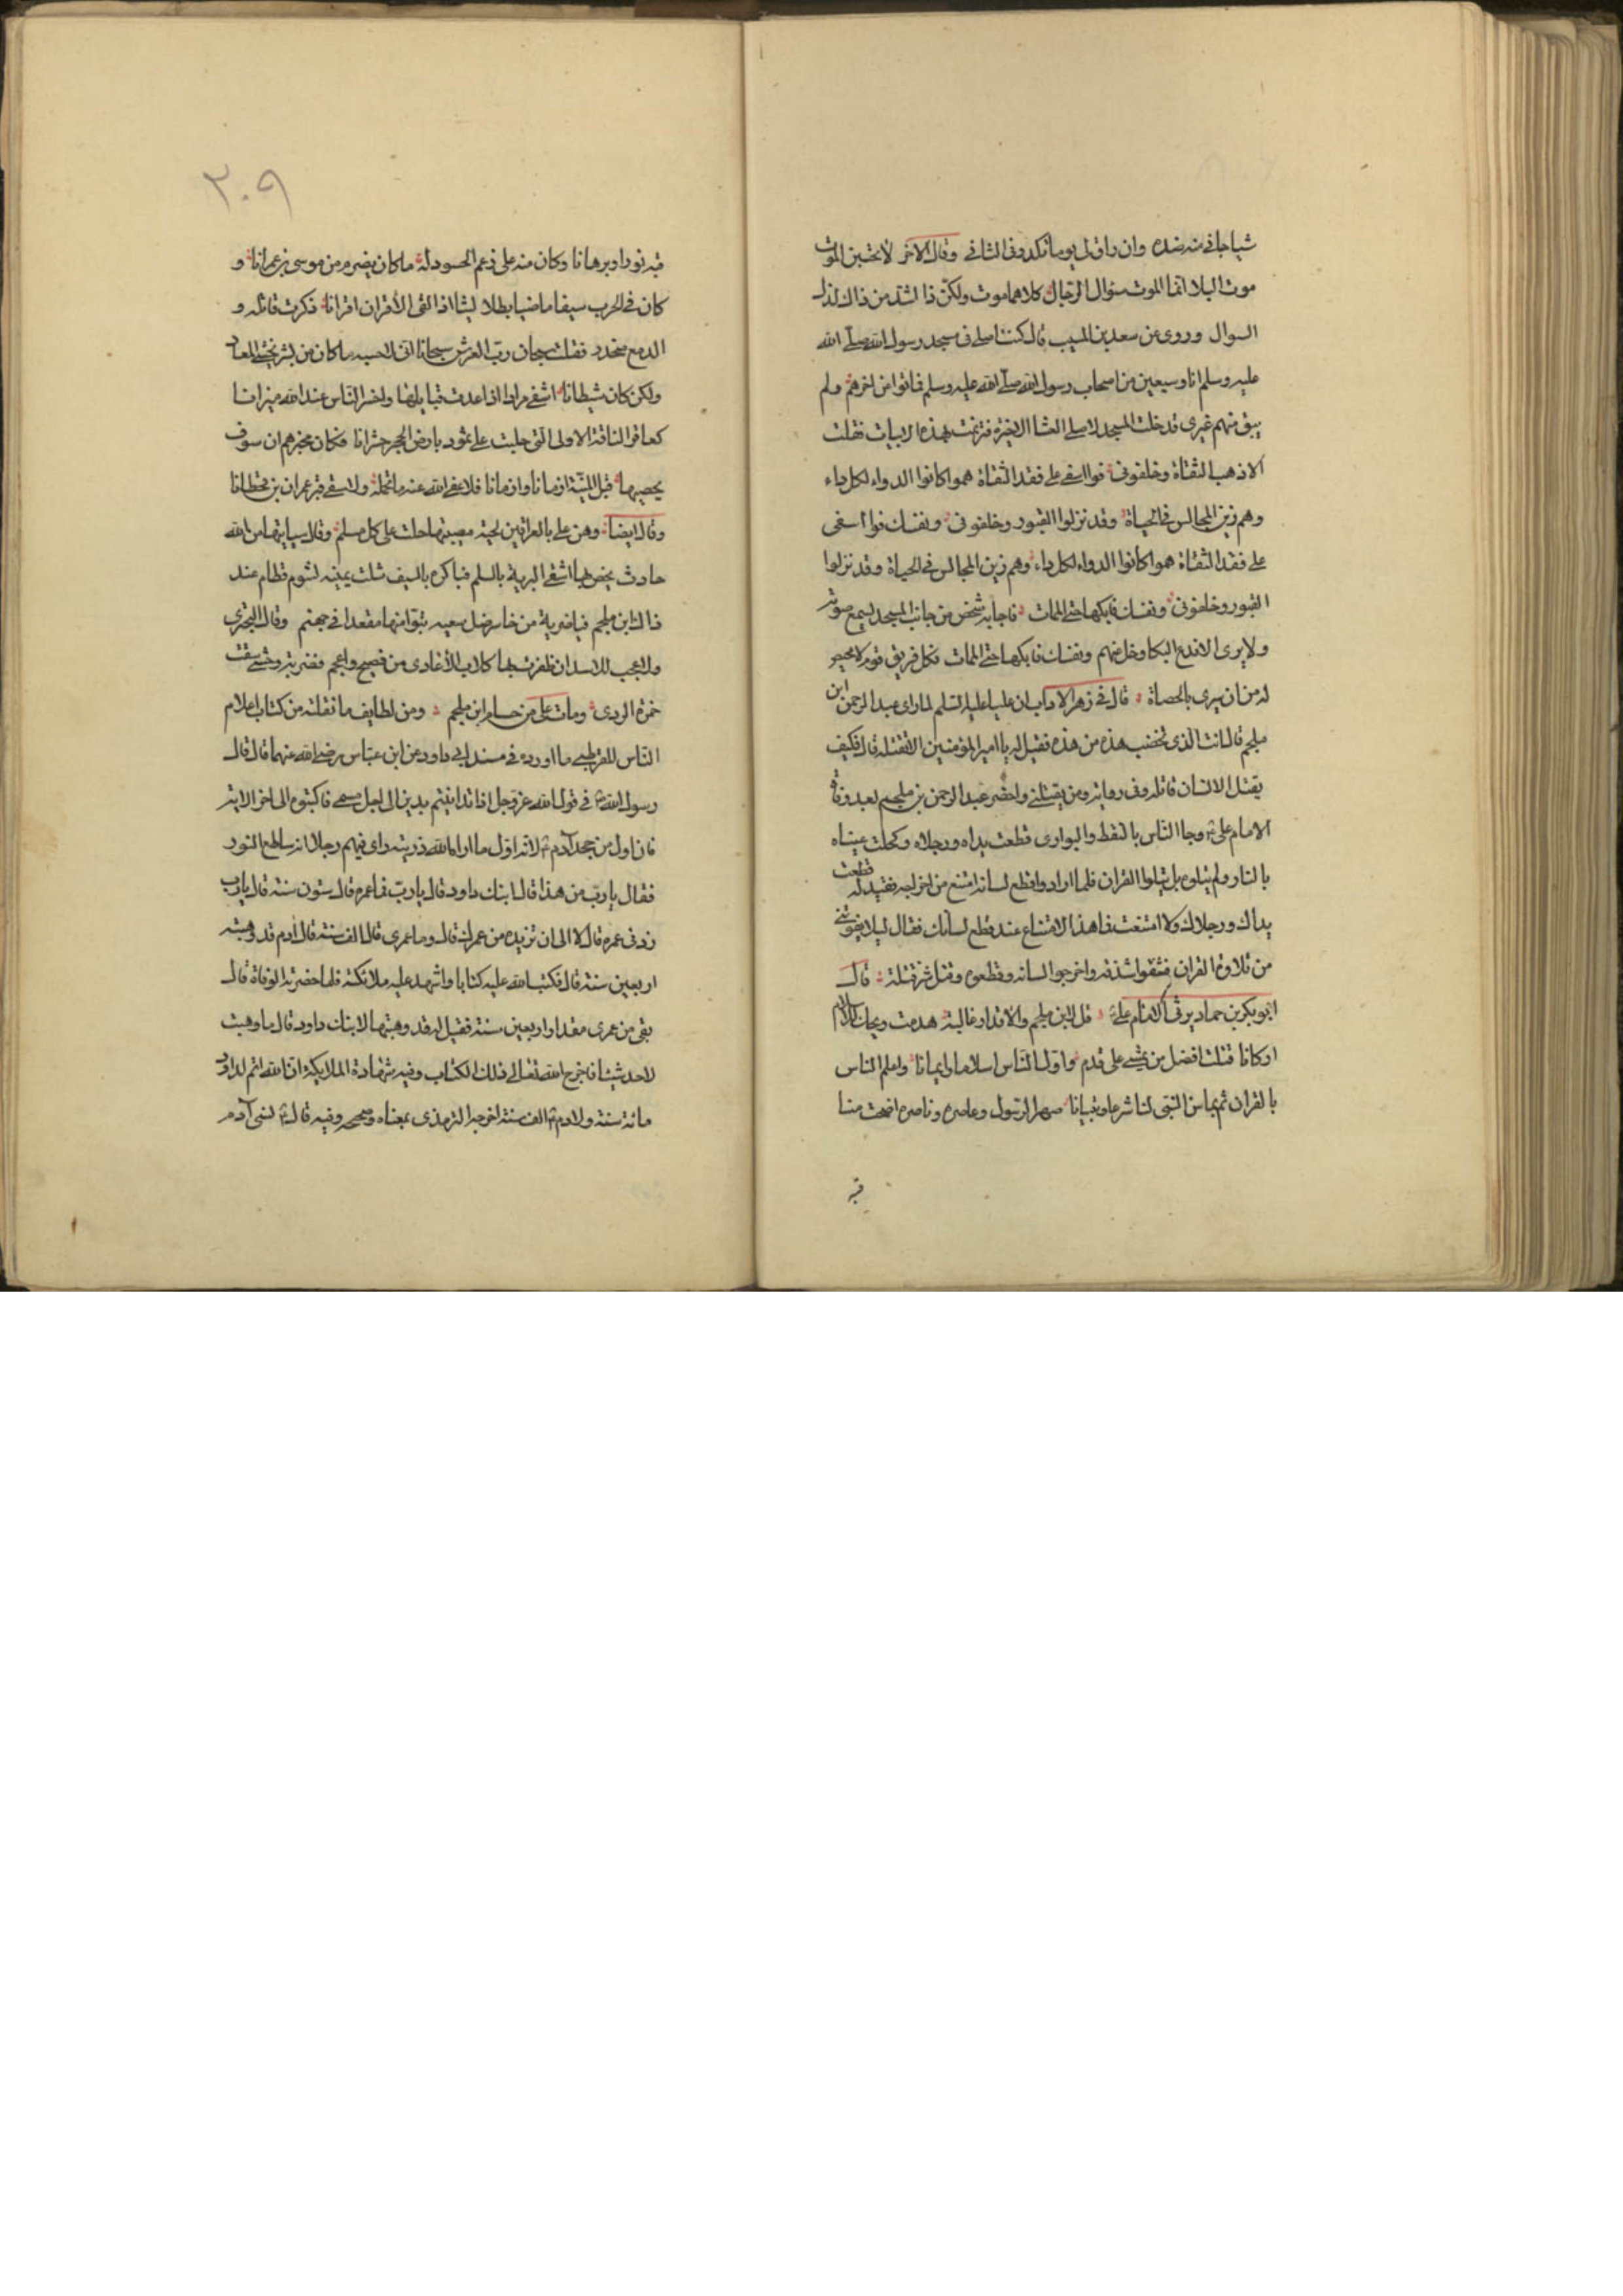 شيا جانى منه ضده وان راق لى يوما تكدر فى الثانى وقال الاخر لا تحسبن الموت
موت البلا انما الموت سؤال الرجال كلاهما موت ولكن ذا اشد من ذاك لذل
السوال وروى عن سعد بن المسيب قال كنت اصلى فى مسجد رسول الله صلى الله
عليه وسلم انا وسبعين من اصحاب رسول الله صلى الله عليه وسلم فماتوا من اخرهم ولم
يبق منهم غيرى قدخلت المسجد لاصلى العشا الاخيرة فترنمت بهذه الابيات فقلت
الا ذهب الثقاة وخلفونى فوا اسفى على فقد الثقاة هموا كانوا الدواء لكل داء
وهم زين المجالس فى الحياة وقد نزلوا القبور وخلفونى ونفسك فوا اسفى
على فقد الثقاة هموا كانوا الدواء لكل داء وهم زين المجالس فى الحياة وقد نزلوا
القبور وخلفونى ونفسك فابكها حتى الممات فاجابه شخص من جانب المسجد يسمع صوته
ولا يرى الا فدع البكا وخل عنهم ونفسك فابكها حتى الممات فكل فريق قوم لا محيص
له من ان يرى بالحصاة قال فى زهر الاداب ان عليا عليه السلم لما راى عبد الرحمن ابن
ملجم قال انت الذى تخضب هذه من هذه فقيل له يا امير المؤمنين الا تقتله قال فكيف
يقتل الانسان قاتله وفى رواية ومن يقتلنى واحضر عبد الرحمن بن ملجم بعد وفاة
الامام على وجا الناس بالنفط والبوارى قطعت يداه ورجلاه وكحلت عيناه
بالنار ولم يتاوه بل يتلوا القران فلما ارادوا قطع لسانه امتنع من اخراجه فقيل له قطعت
يداك ورجلاك ولا امتنعت فما هذا الامتناع عند قطع لسانك فقال ليلا يفوتنى
من تلاوة القران فشقوا شدقه واخرجوا لسانه وقطعوه وقتل شر قتلة قال
ابو بكر بن حماد يرثى الامام على قل لابن ملجم والاقدار غالبة هدمت ويحك للاسلام
اركانا قتلت افضل من يمشى على قدم واول الناس اسلاما وايمانا واعلم الناس
بالقران ثم بما سن النبى لنا شرعا وتبيانا صهر الرسول وعاصره وناصره اضحت منا
قبه
٢٠٩
قبه نورا وبرهانا وكان منه على زعم الحسود له ما كان يضرم من موسى بن عمرانا و
كان فى الحرب سيفا ماضيا بطلا ليثا اذا لقى الاقران اقرانا ذكرت قاتله و
الدمع منحدر فقلت سبحان رب العرش سبحانا انى لاحسبه ما كان من بشر يخشى المعاد
ولكن كان شيطانا اشقى مرادا اذا عدت قبايلها واخسر الناس عند الله ميزانا
كعاقر الناقة الاولى التى جلبت على ثمود بارض الحجر خسرانا فكان مخبرهم ان سوف
يخضبها قبل المنية ازمانا وازمانا فلا عفى الله عنه ما تحمله ولا سقى قبر عمران بن حطانا
وقال ايضا وهن على بالعراقين لحية مصيبتها حلت على كل مسلم وقال سياتيها من الله
حادث يخضبها اشقى البرية بالسلم فباكره بالسيف شلت يمينه لشوم قطام عند
ذاك ابن ملجم فيا ضربة من خاسر ضل سعيه تبوا منها مقعدا فى جهنم وقال البحترى
ولا عجب للاسد ان ظفرت بها كلاب الاعادى من فصيح واعجم فضربة وحشى سقت
حمزة الردى ومات على من حسام ابن ملجم ومن لطايف ما نقلته من كتاب اعلام
الناس للقرطبى ما اورده فى مسند ابى داود عن ابن عباس رضى الله عنهما قال قال
رسول الله فى قول الله عز وجل اذا تداينتم بدين الى اجل مسمى فاكتبوه الى اخر الاية
فان اول من جحد آدم لانه اول ما اراه الله ذريته راى فيهم رجلا انه ساطع النور
فقال يا رب من هذا قال ابنك داود قال يا رب فما عمره قال ستون سنة قال يا رب
زد فى عمره قال لا الا ان تزيده من عمرك قال وما عمرى قال الف سنة قال ادم قد وهبته
اربعين سنة قال فكتب الله عليه كتابا واشهد عليه ملائكته فلما حضرته الوفاة قال
بقى من عمرى مقدار اربعين سنة فقيل له قد وهبتها لابنك داود قال ما وهبت
لاحد شيئا فاخرج الله تعالى ذلك الكتاب وفيه شهادة الملايكة ان الله اتم لداود
مائة سنة ولادم الف سنة اخرجه الترمذى بمعناه وصححه وفيه قال نسى آدم